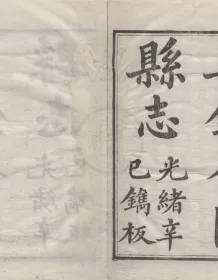 縣志
光緒辛
巳鐫板